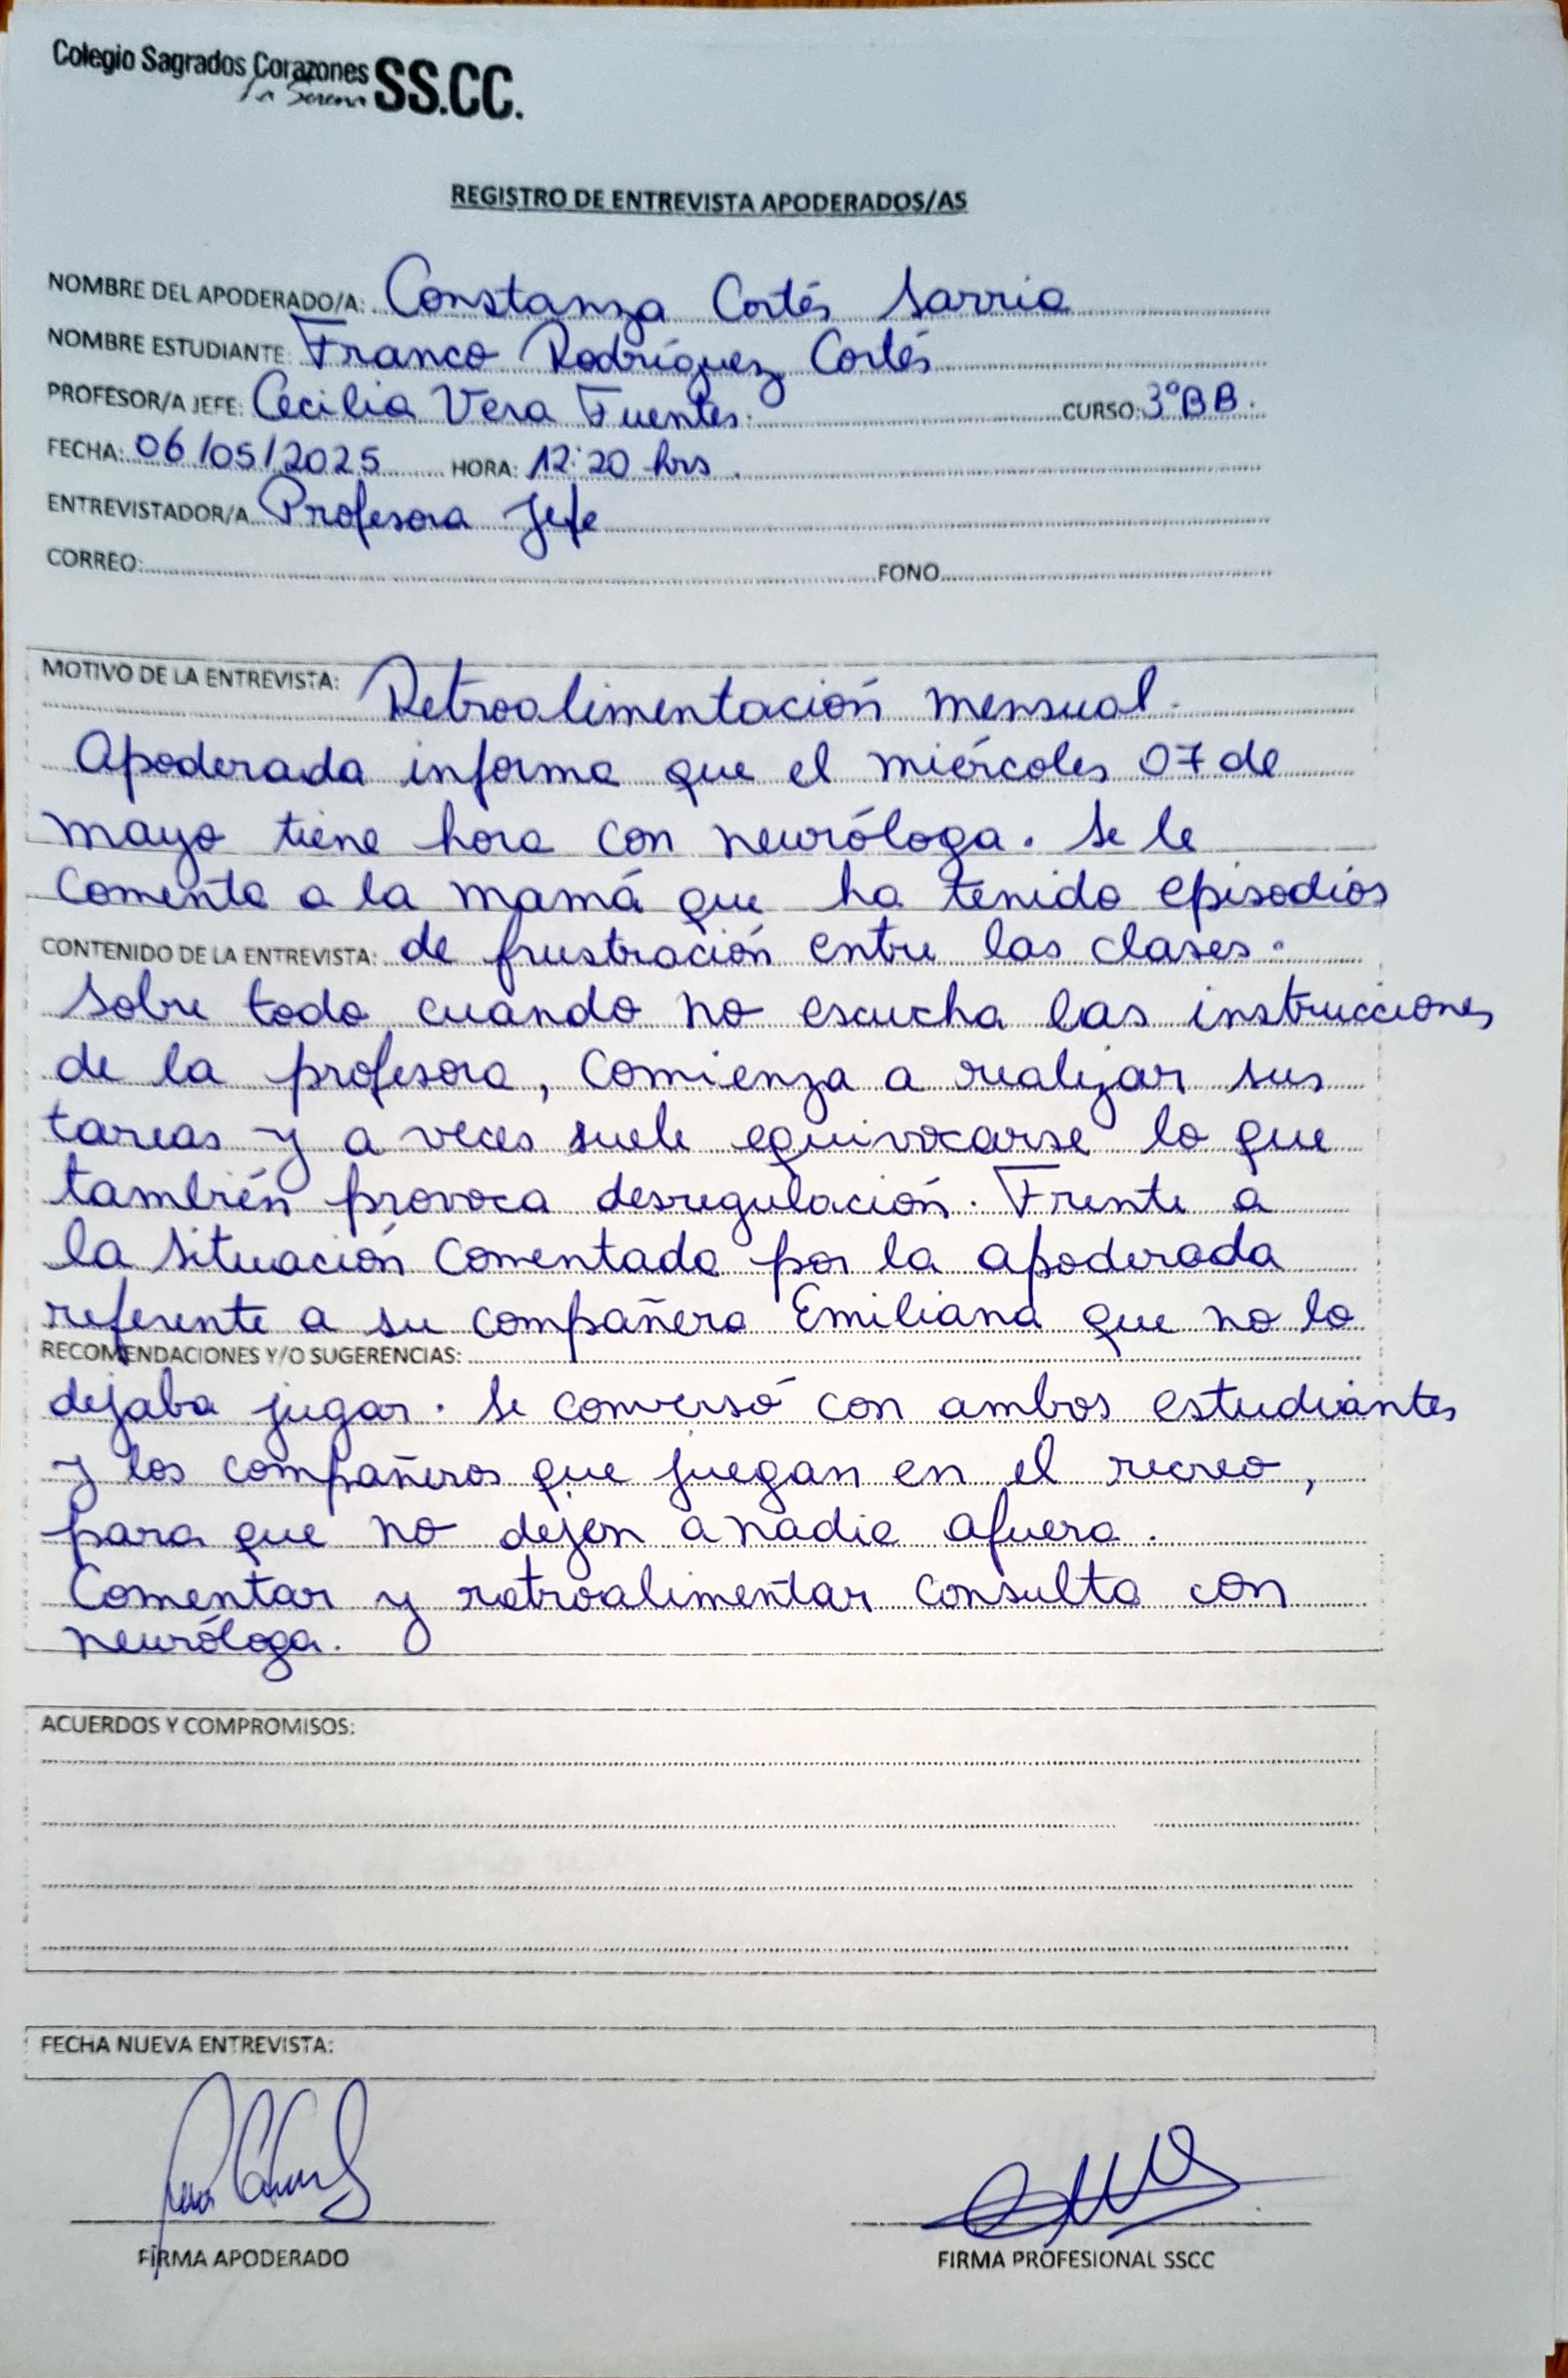 Colegio Sagrados Corazones SS.CC.
La Serena
REGISTRO DE ENTREVISTA APODERADOS/AS
NOMBRE DEL APODERADO/A: Constanza Cortés Sarria
NOMBRE ESTUDIANTE: Franco Rodríguez Cortés
PROFESOR/A JEFE: Cecilia Vera Fuentes. CURSO: 3°BB.
FECHA: 06/05/2025 HORA: 12:20 hrs.
ENTREVISTADOR/A Profesora Jefe
CORREO: FONO
MOTIVO DE LA ENTREVISTA: Retroalimentación mensual.
Apoderada informa que el miércoles 07 de
mayo tiene hora con neuróloga. Se le
comenta a la mamá que ha tenido episodios
CONTENIDO DE LA ENTREVISTA: de frustración entre las clases.
Sobre todo cuando no escucha las instrucciones
de la profesora, comienza a realizar sus
tareas y a veces suele equivocarse lo que
también provoca desregulación. Frente a
la situación comentada por la apoderada
referente a su compañera Emiliana que no lo
RECOMENDACIONES Y/O SUGERENCIAS:
dejaba jugar. Se conversó con ambos estudiantes
y los compañeros que juegan en el recreo,
para que no dejen a nadie afuera.
Comentar y retroalimentar consulta con
neuróloga.
ACUERDOS Y COMPROMISOS:
FECHA NUEVA ENTREVISTA:
FIRMA APODERADO FIRMA PROFESIONAL SSCC